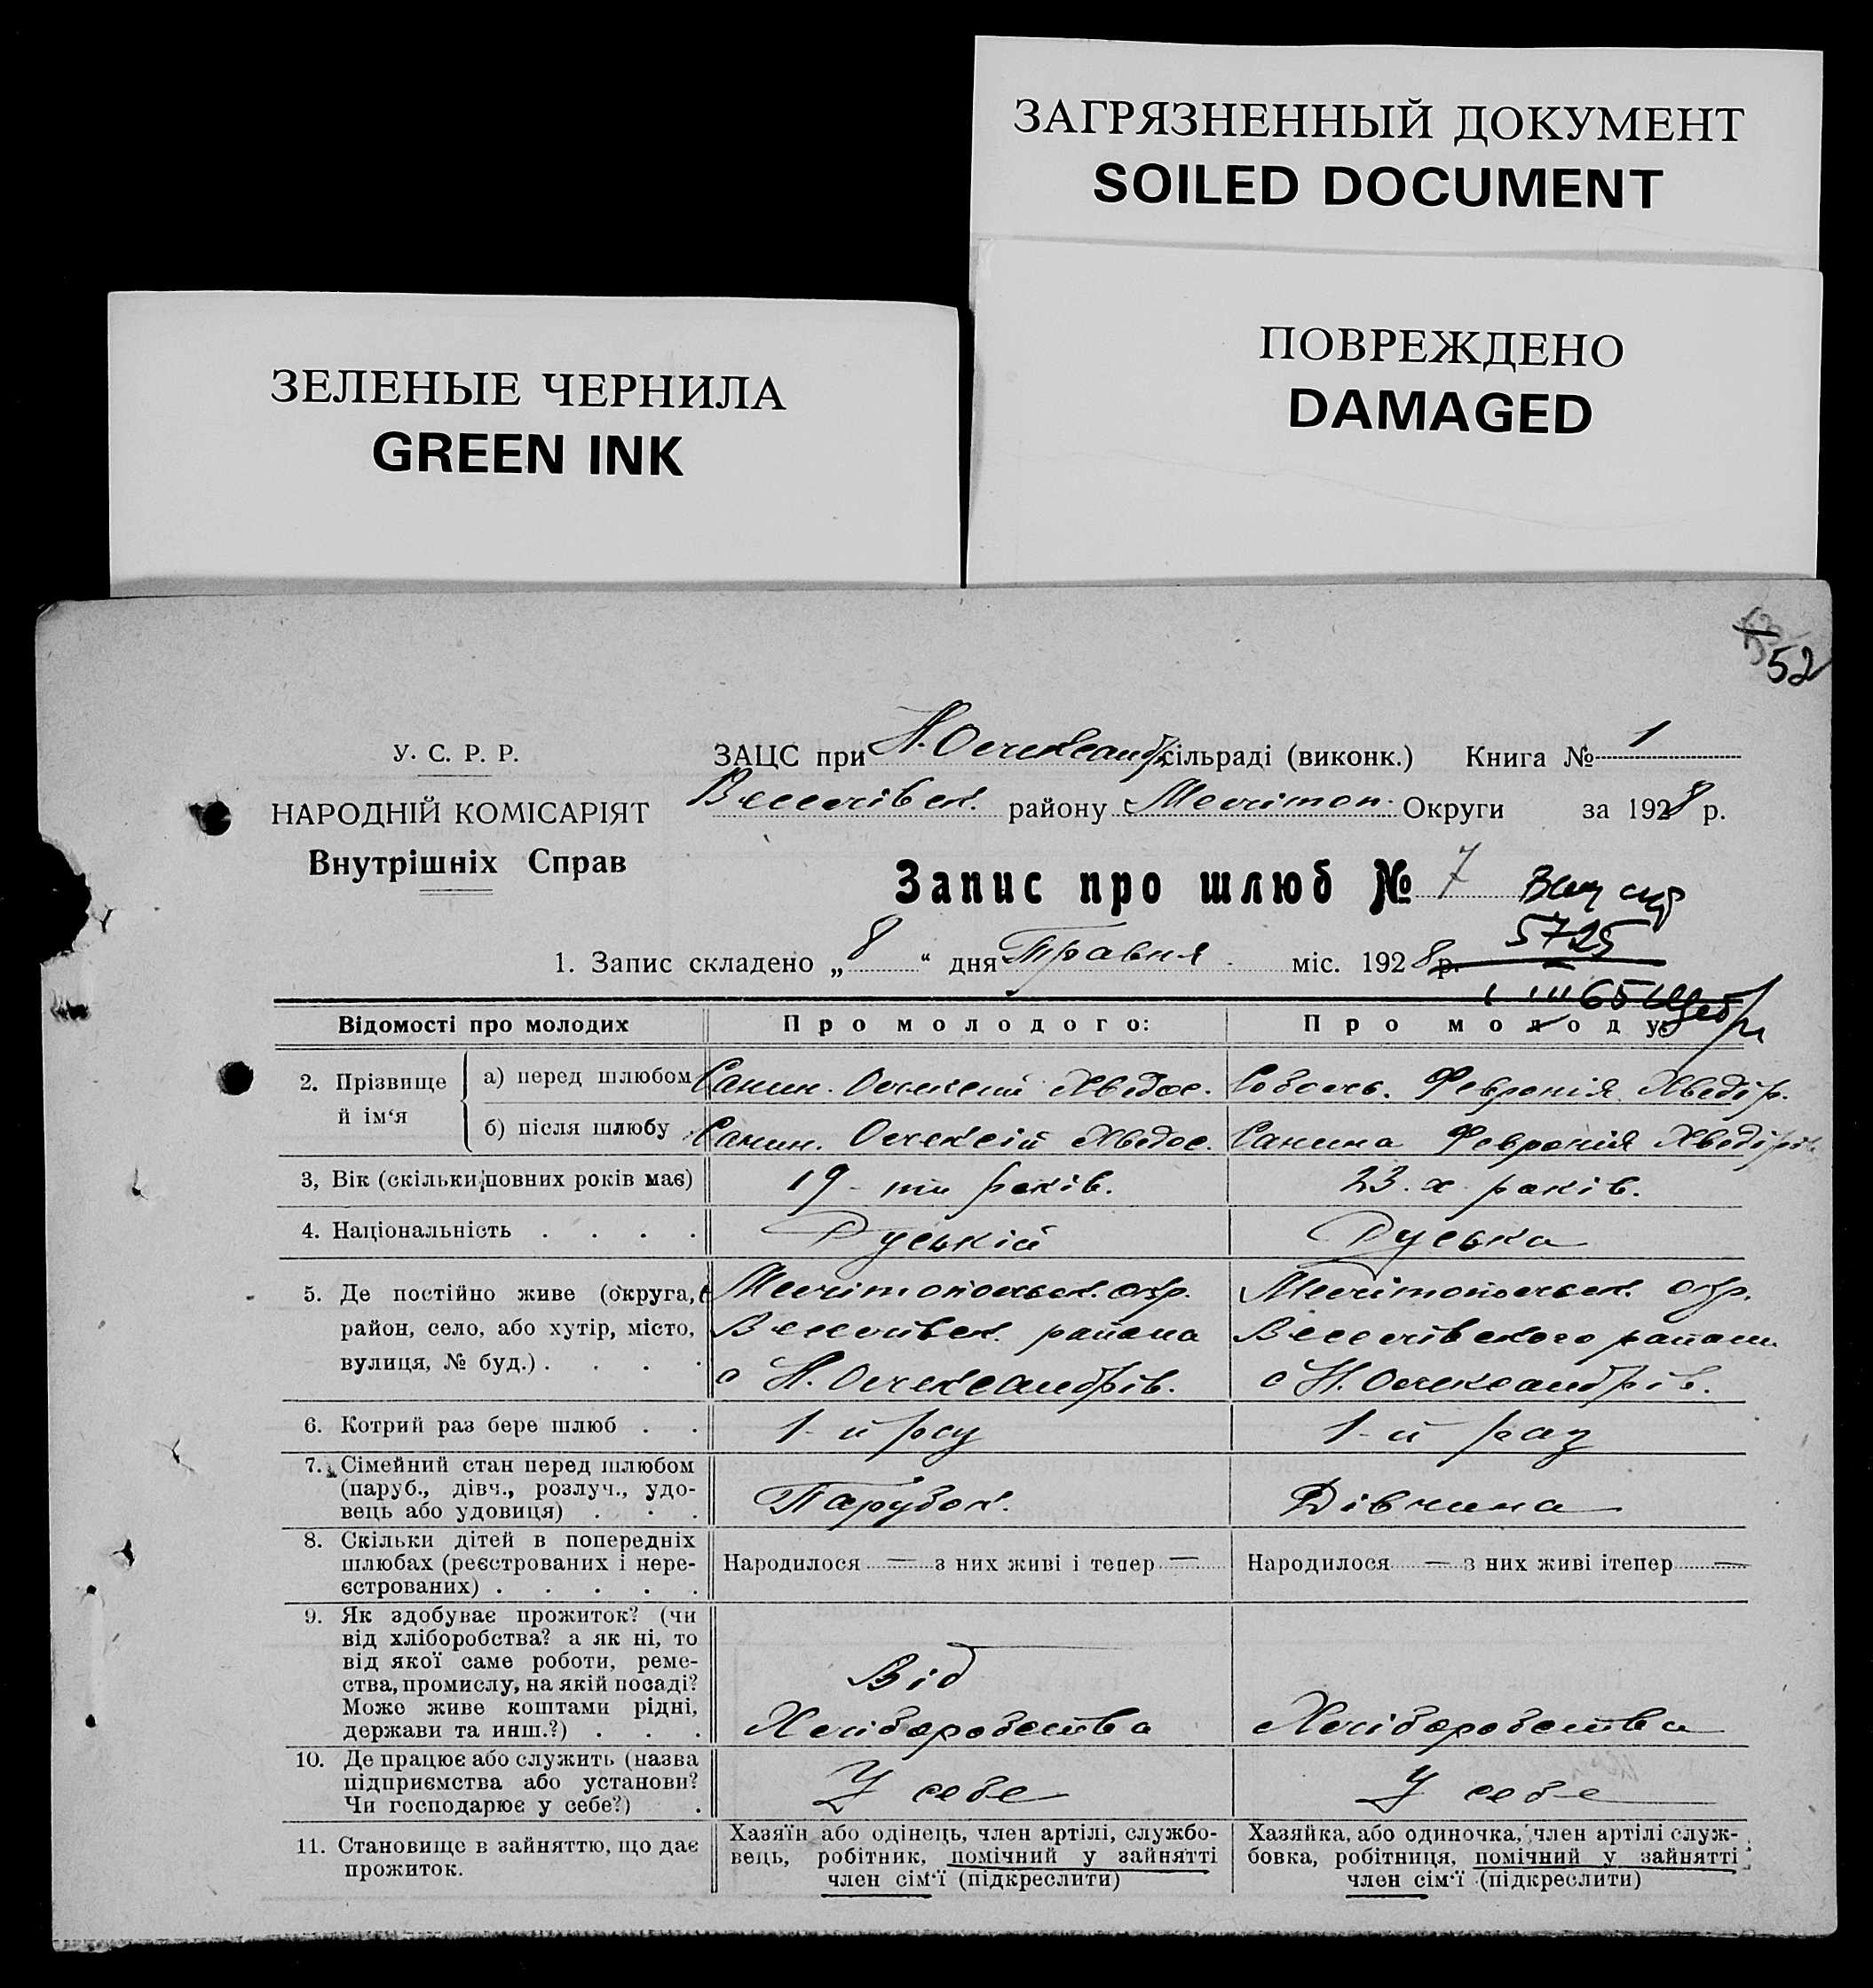 ЗАГРЯЗНЕННЫЙ ДОКУМЕНТ
SOILED DOCUMENT
ПОВРЕЖДЕНО
DAMAGED
ЗЕЛЕНЫЕ ЧЕРНИЛА
GREEN INK
52
У. С. Р. Р.
НАРОДНІЙ КОМІСАРІЯТ
Внутрішніх Справ
ЗАЦС при Н. Олександр сільраді (виконк.) Книга № 1
Веселівськ. району Меліт п. Округи за 1928 р.
Запис про шлюб № 7
5725
1. Запис складено „ 8 “ дня Травня міс. 1928 р.
Відомості про молодих Про молодого: Про молоду
2. Прізвище й ім‘я
а) перед шлюбом Санин. Олексій Хведос. Соболь. Февронія Хведір.
б) після шлюбу Санин. Олексій Хведос. Санина Февронія Хведір.
3, Вік (скільки повних років має) 19-ти років. 23-х років.
4. Національність . . . . Руській Руська
5. Де постійно живе (округа, район, село, або хутір, місто, вулиця, № буд.) . . . .
Мелітопольськ. окр. Веселівськ. района с Н. Олександрів.
Мелітопольськ. окр. Веселівского района с Н. Олександрів.
6. Котрий раз бере шлюб . . 1-й раз 1-й раз
7. Сімейний стан перед шлюбом (паруб., дівч., розлуч., удо-
вець або удовиця) . . . Парубок. Дівчина
8. Скільки дітей в попередніх
шлюбах (реєстрованих і нере-
єстрованих) . . . . . Народилося — з них живі і тепер — Народилося — з них живі ітепер —
9. Як здобуває прожиток? (чи
від хліборобства? а як ні, то
від якої саме роботи, реме-
ства, промислу, на якій посаді?
Може живе коштами рідні,
держави та инш.?) . . .
Від
Хліборобства Хліборобства
10. Де працює або служить (назва
підприємства або установи?
Чи господарює у себе?) . У себе У себе
11. Становище в зайняттю, що дає
прожиток.
Хазяїн або одінець, член артілі, службо-
вець, робітник, помічний у зайнятті
член сім‘ї (підкреслити)
Хазяйка, або одиночка, член артілі служ-
бовка, робітниця, помічний у зайнятті
член сім‘ї (підкреслити)